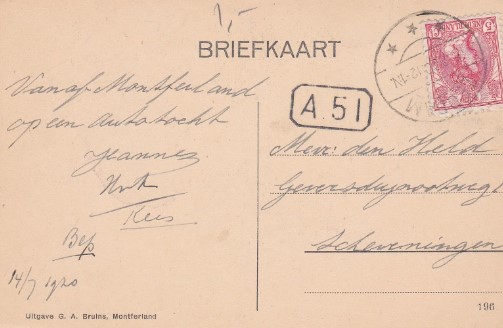 1,-
BRIEFKAART
Vanaf Montferland
op een Autotocht
Jeannes
Kees
Bep
14/7 1920
A.51
Mevr: den Held
Geversdeynootweg
Scheveningen
196
Uitgave G. A. Bruins, Montferland